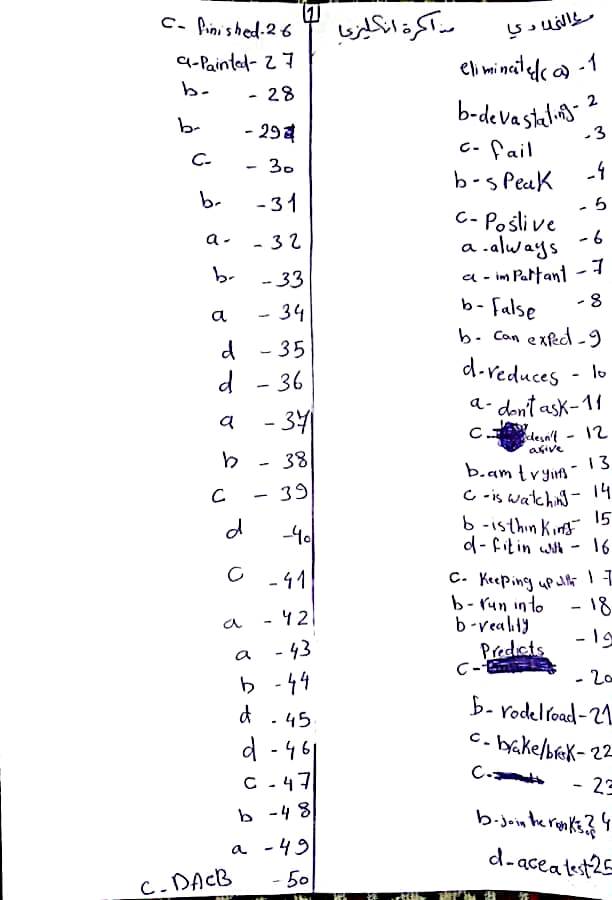 1
مذاكرة انكليزي
eliminate/(a) -1
b-devastating- 2
c- fail -3
b-speak -4
c- Postive - 5
a -always -6
a - impartant -7
b- False -8
b- can expect -9
d-reduces - 10
a- don't ask-11
c- doesn't - 12
b-am trying- 13
c -is watching- 14
b -isthinking- 15
d- fit in with - 16
c- Keeping up with 17
b-run into - 18
b-reality - 19
Predicts
c- - 20
b- rode/road-21
c- brake/break- 22
c- - 23
b-join the ranks of 24
d-ace a test 25
c- finished-26
a-Painted- 27
b- - 28
b- - 29
c- - 30
b- -31
a- - 32
b- -33
a - 34
d - 35
d - 36
a - 37
b - 38
c - 39
d -40
c -41
a - 42
a - 43
b -44
d - 45
d - 46
c - 47
b -48
a - 49
c- DACB - 50